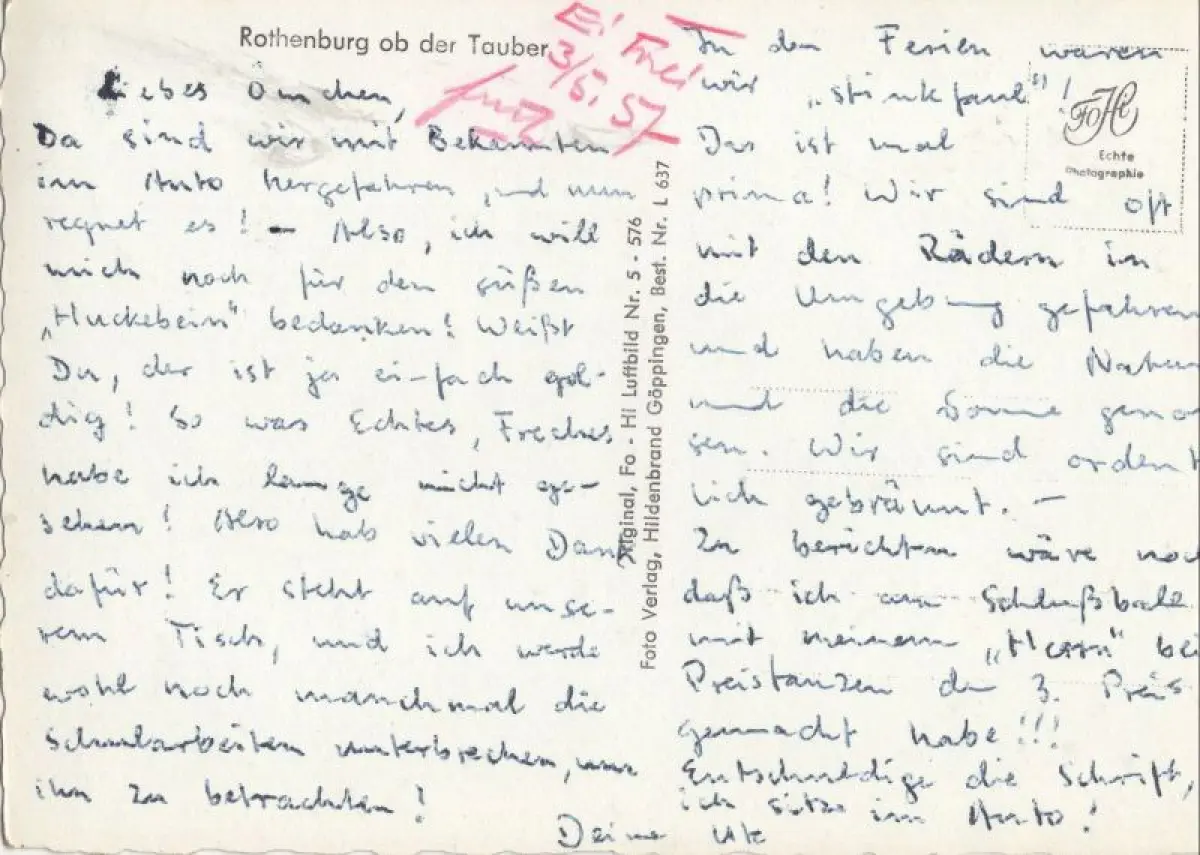 Rothenburg ob der Tauber
Liebes Ömchen,
Da sind wir mit Bekannten
im Auto hergefahren, und nun
regnet es! – Also, ich will
mich noch für den süßen
„Huckebein" bedanken! Weißt
Du, der ist ja einfach gol-
dig! So was Echtes, Freches
habe ich lange nicht ge-
sehen! Also hab vielen Dank
dafür! Er steht auf unse-
rem Tisch, und ich werde
wohl noch manchmal die
Schularbeiten unterbrechen, um
ihn zu betrachten!
3/5. 57
Original, Fo - Hi Luftbild Nr. 5 - 576
Foto Verlag, Hildenbrand Göppingen, Best. Nr. L 637
FoHi
Echte
Photographie
In den Ferien waren
wir „stinkfaul"!
Das ist mal
prima! Wir sind oft
mit den Rädern in
die Umgebung gefahren
und haben die Natur
und die Sonne genos
sen. Wir sind ordent
lich gebräunt. –
Zu berichten wäre noch
daß ich am Schlußball
mit meinem „Herrn" bei
Preistanzen den 3. Preis
gemacht habe!!!
Entschuldige die Schrift,
ich sitze im Auto!
Deine Ute